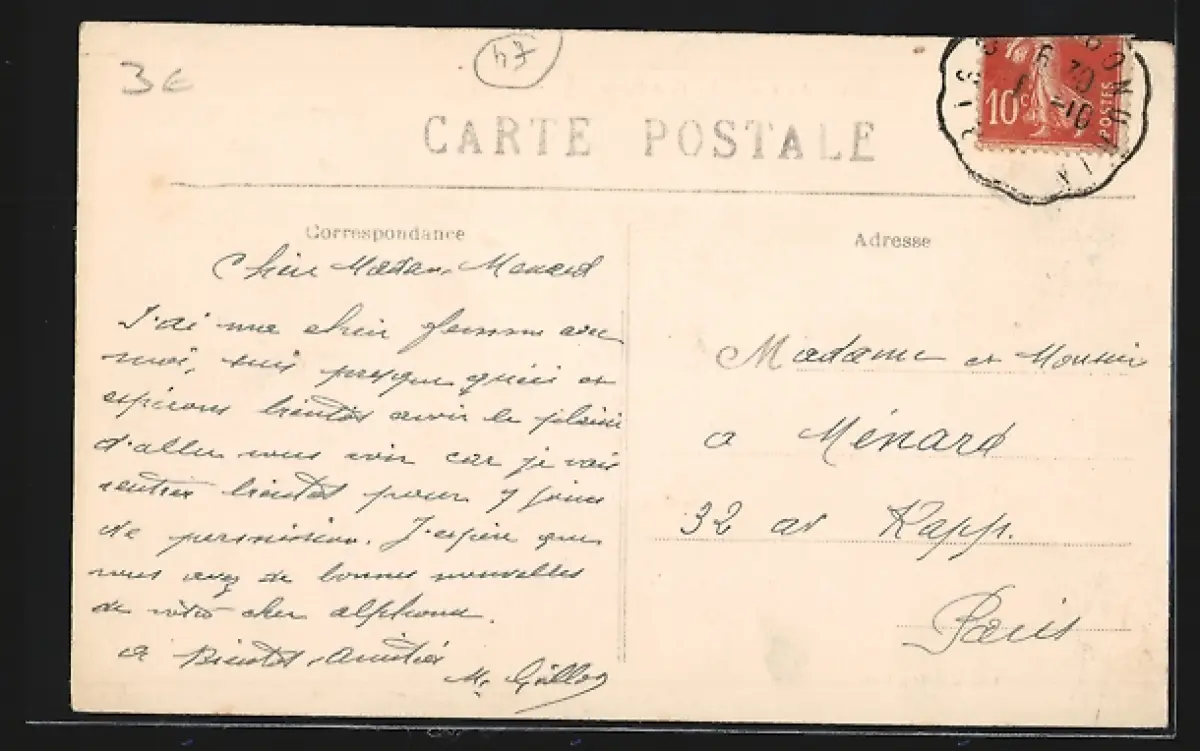 3€
47
CARTE POSTALE
10c
POSTES
Correspondance
Adresse
Chère Madame Menard
J'ai ma chère femme avec
moi, suis presque guéri et
espérons bientôt avoir le plaisir
d'aller vous voir car je vais
rentrer bientôt pour 7 jours
de permission. J'espère que
vous avez de bonnes nouvelles
de votre cher alphonse.
a Bientôt, amitiés
Madame et Monsieur
a Ménard
32 av Rapp.
Paris